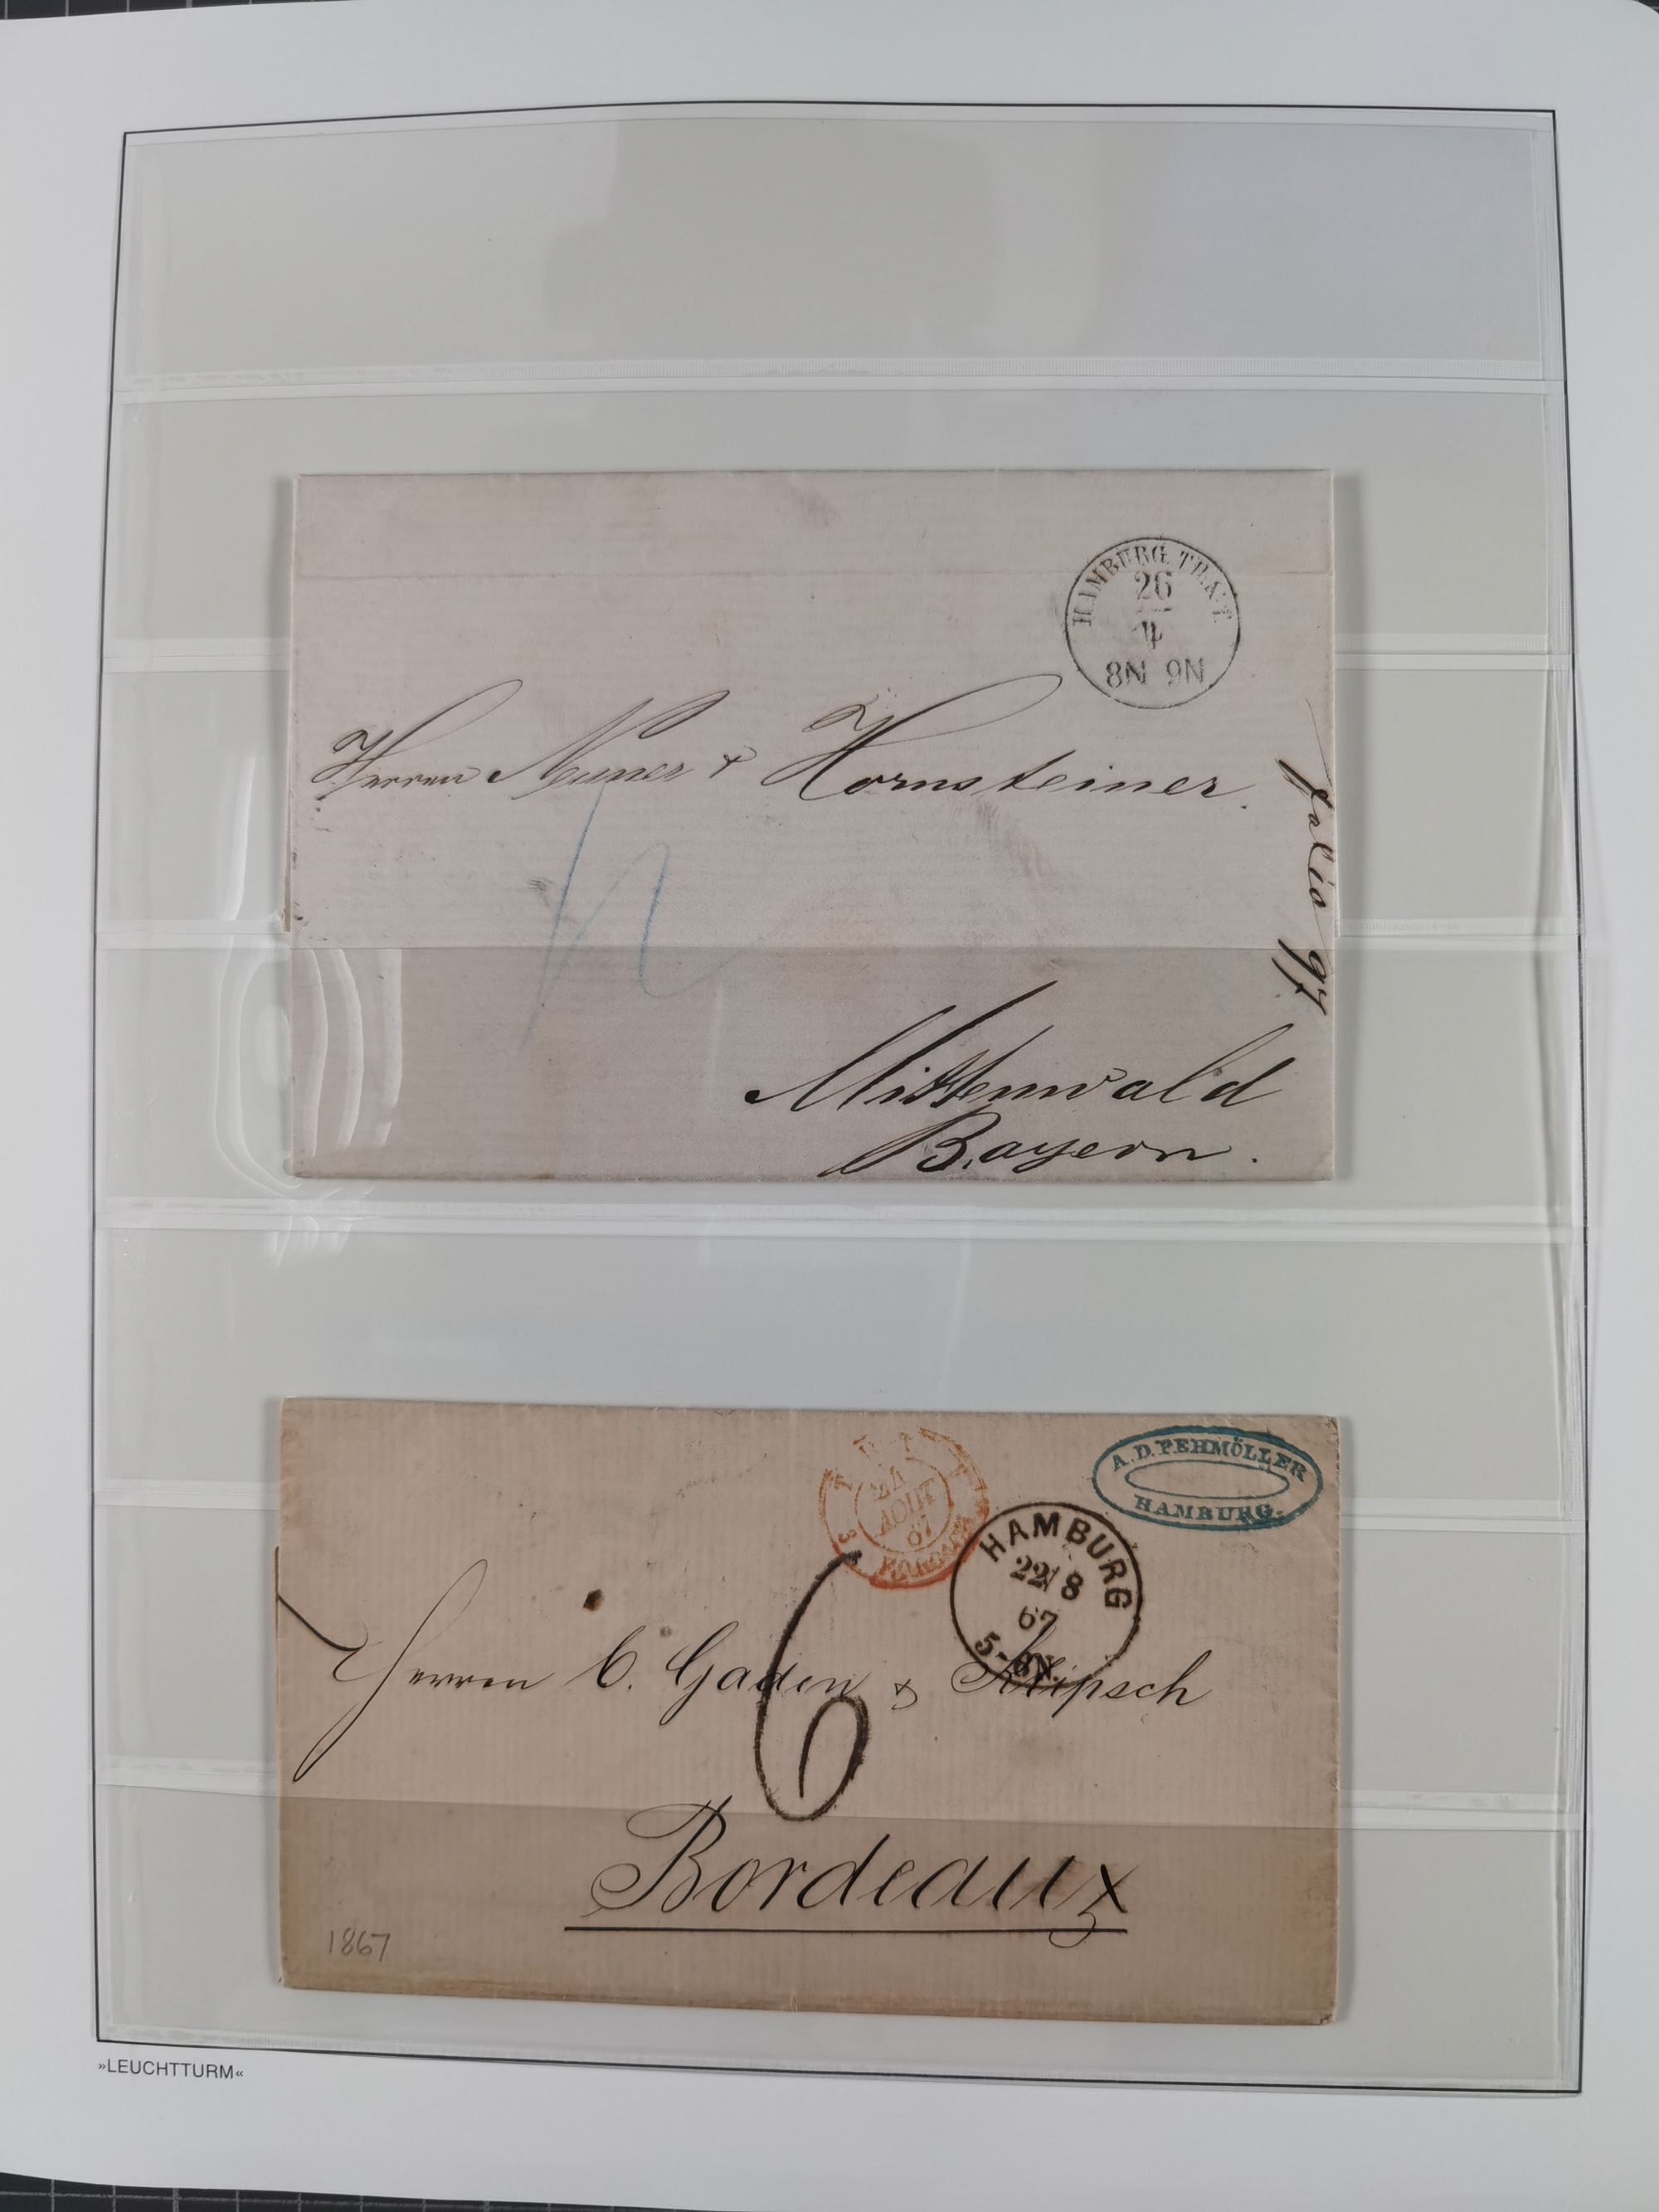 HAMBURG TH.&T.
26
4
8N 9N
Herren Neuner & Hornsteiner.
folio 97
Mittenwald
Bayern.
A.D. PEHMÖLLER
HAMBURG.
24
AOUT
67
3
HAMBURG
22/8
67
5-6N.
6
Herren C. Gaden & Klipsch
Bordeaux
1867
»LEUCHTTURM«